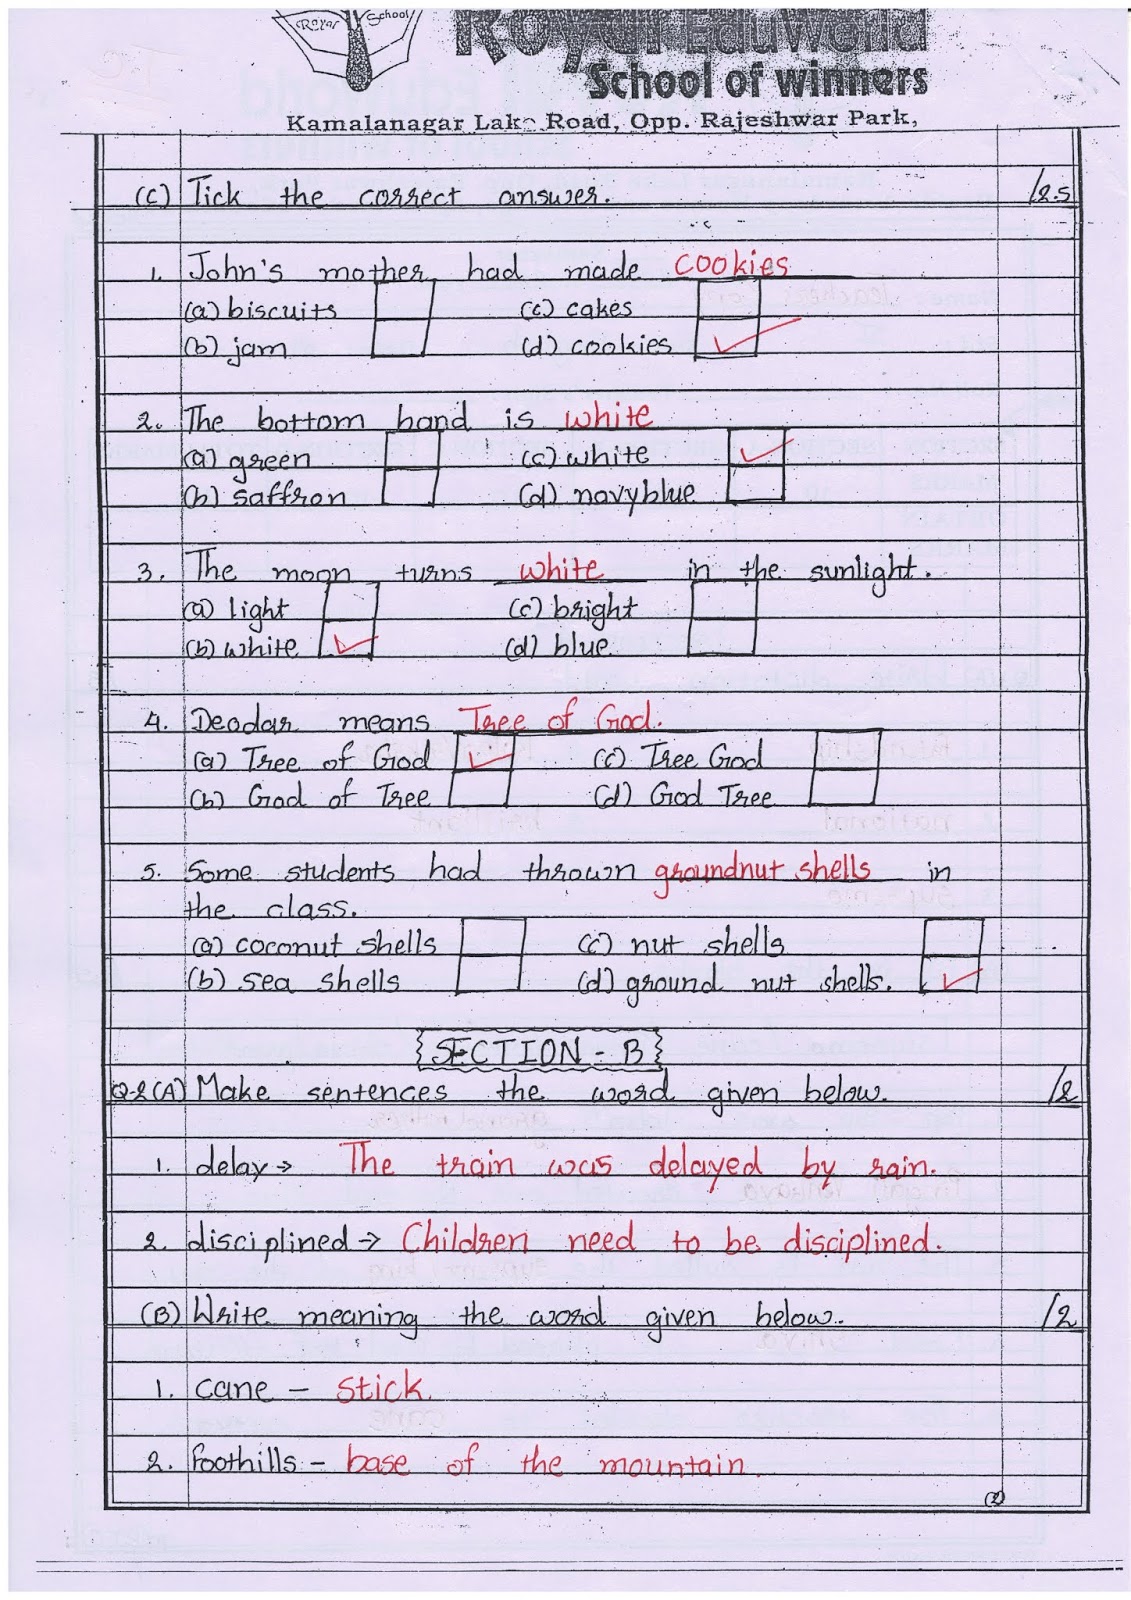 Royal School
Royal EduWorld
School of winners
Kamalanagar Lake Road, Opp. Rajeshwar Park,
(C) Tick the correct answer. /2.5
1. John's mother had made cookies
(a) biscuits (c) cakes
(b) jam (d) cookies
2. The bottom band is white
(a) green (c) white
(b) saffron (d) navyblue
3. The moon turns white in the sunlight.
(a) light (c) bright
(b) white (d) blue
4. Deodar means Tree of God.
(a) Tree of God (c) Tree God
(b) God of Tree (d) God Tree
5. Some students had thrown groundnut shells in
the class.
(a) coconut shells (c) nut shells
(b) sea shells (d) ground nut shells.
SECTION - B
Q.2 (A) Make sentences the word given below. /2
1. delay → The train was delayed by rain.
2. disciplined → Children need to be disciplined.
(B) Write meaning the word given below. /2
1. cane - stick.
2. foothills - base of the mountain.
(2)